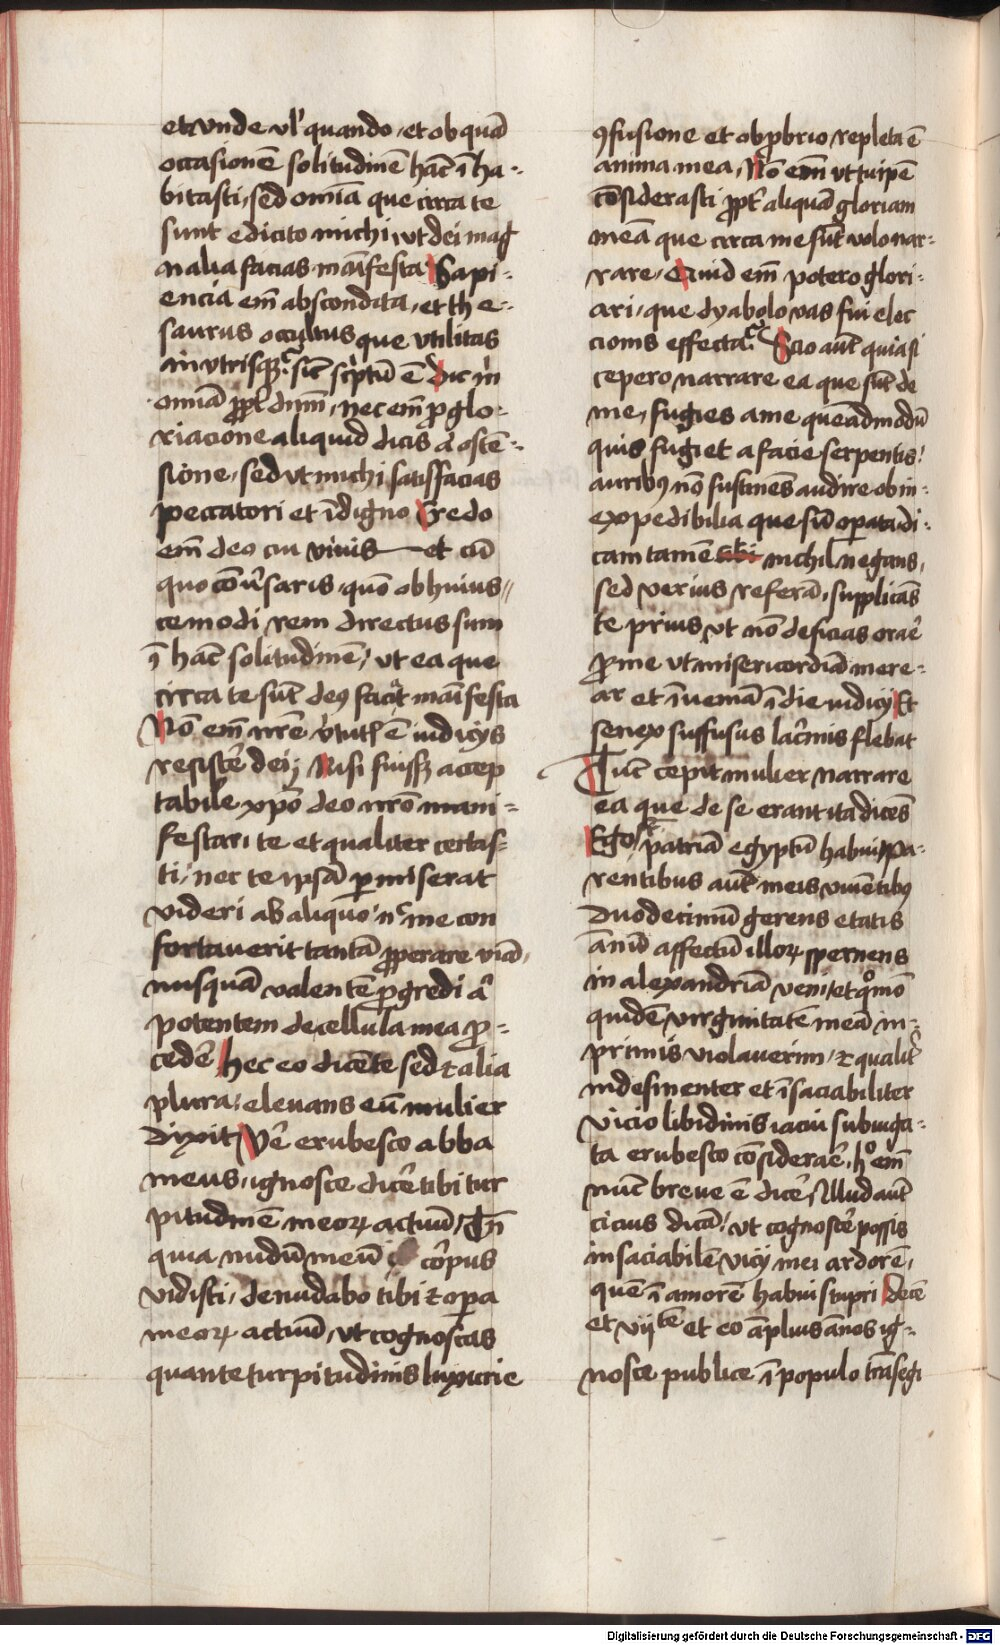 et unde vl' quando, et ob quā
occasionē solitudinē hāc ī ha-
bitasti, sed omīa que circa te
sunt edicito michi, ut dei mag
nalia facias māifesta Sapi-
encia em̄ abscondita, et the-
saurus occultus que utilitas
in utrisqʒ. sic̄ sc̓ptū ē dic m̓
omīa ꝓpt̓ dn̄m, nec em̄ ꝓ glo-
riacione aliquid dicis ā ostē-
sione, sed ut michi satisfacias
peccatori et īdigno Credo
em̄ deo cui vivis et cū
quo cōv̓saris, quō ob huius
cemodi rem directus sum
ī hāc solitudinē, ut ea que
circa te sūt deꝯ faciat māifesta
Nō em̄ nr̄e v̓tut̓ ē iudicijs
resistē dei; Nisi fuissʒ accep
tabile xp̄o deo nr̄o mani-
festari te et qualiter certas-
ti, nec te ipsā ꝑmiserat
videri ab aliquo, nc̄ me con
fortaverit tantā ꝓperare viā,
nusquā valentē ꝓgredi a̓
potentem de cellula mea ꝓ-
cedē hec eo dicēte sed ⁊ alia
plura, elevans eū mulier
dixit Vē erubesco abba
meus, ignosce dicē tibi tur
pitudinē meoꝝ actuū, Tn̄
quia nudū meū corpus
vidisti, denudabo tibi ⁊ oꝑa
meoꝝ actuū, ut cognoscas
quante turpitudinis luxurie
ꝯfusione et obꝓbrio repleta ē
anima mea, Nō em̄ ut tu ipē
cōsiderasti ꝓpt̓ aliquā gloriam
meā que circa me sūt volo nar-
rare, Quid em̄ potero glori-
ari, que dyabolo vas fui elec
cionis effecta. Scio aut̄ quia si
cepero narrare ea que sūt de
me, fugies a me quēadmodū
quis fugiet a facie serpentis,
auribꝰ nō sustinēs audire ob in-
expedibilia que sū oꝑata di-
cam tamē nichil negans,
sed verius referā, supplicās
te prius, ut nō deficias orāe
ꝓ me ut misericordiā mere-
ar et īveniā ī die iudicij Et
senex suffusus lac̓mis flebat
Tūc cepit mulier narrare
ea que de se erant ita dicēs
Ego patriā egyptū habui, Pa-
rentibus aut̄ meis viventibꝰ
duodecimū gerens etatis
annū affectū illoꝝ spernens
in alexandriā veni, et qͦmō
quidē virginitatē meā in-
primis violaverim, ⁊ qualit̓
indesinenter et īsaciabiliter
vicio libidinis iacui subiuga-
ta erubesco cōsiderāe, hͦ em̄
nūc breve ē dicē, Illud aut̄
cicius dicā, ut cognoscē possis
insaciabilē vicij mei ardorē,
quē ī amorē habui stupri Decē
et vijtē et eo āplius ānos ig-
nosce publice ī populo trāsegi
Digitalisierung gefördert durch die Deutsche Forschungsgemeinschaft - DFG